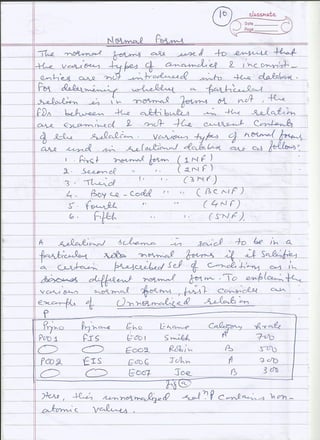 10
classmate
Date
Page
Normal Forms
The normal forms are used to ensure that
the various types of anamolies & inconsist-
encies are not introduced into the database.
For determining whether a particular
relation is in normal forms or not, the
FDs between the attributes in the relation
are examined & not the current contents
of the relation. Various types of normal forms
are used in relational database are as follows:
1. First normal form (1NF)
2. Second " " (2NF)
3. Third " " (3NF)
4. Boyce-Codd " " (BCNF)
5. Fourth " (4NF)
6. Fifth " " (5NF)
A relational schema is said to be in a
particular normal forms if it satisfies
a certain prescribed set of conditions as in
different normal form. To explain the
various normal forms, first consider an
example of Unnormalized relation.
P
Pjno Pjname Eno Ename Category hrate
P001 FIS E001 Smith A 700
E002 Robin B 500
P002 EIS E006 John A 700
E007 Joe B 300
fig (a)
Here, this unnormalized relnP contains non-
atomic values.